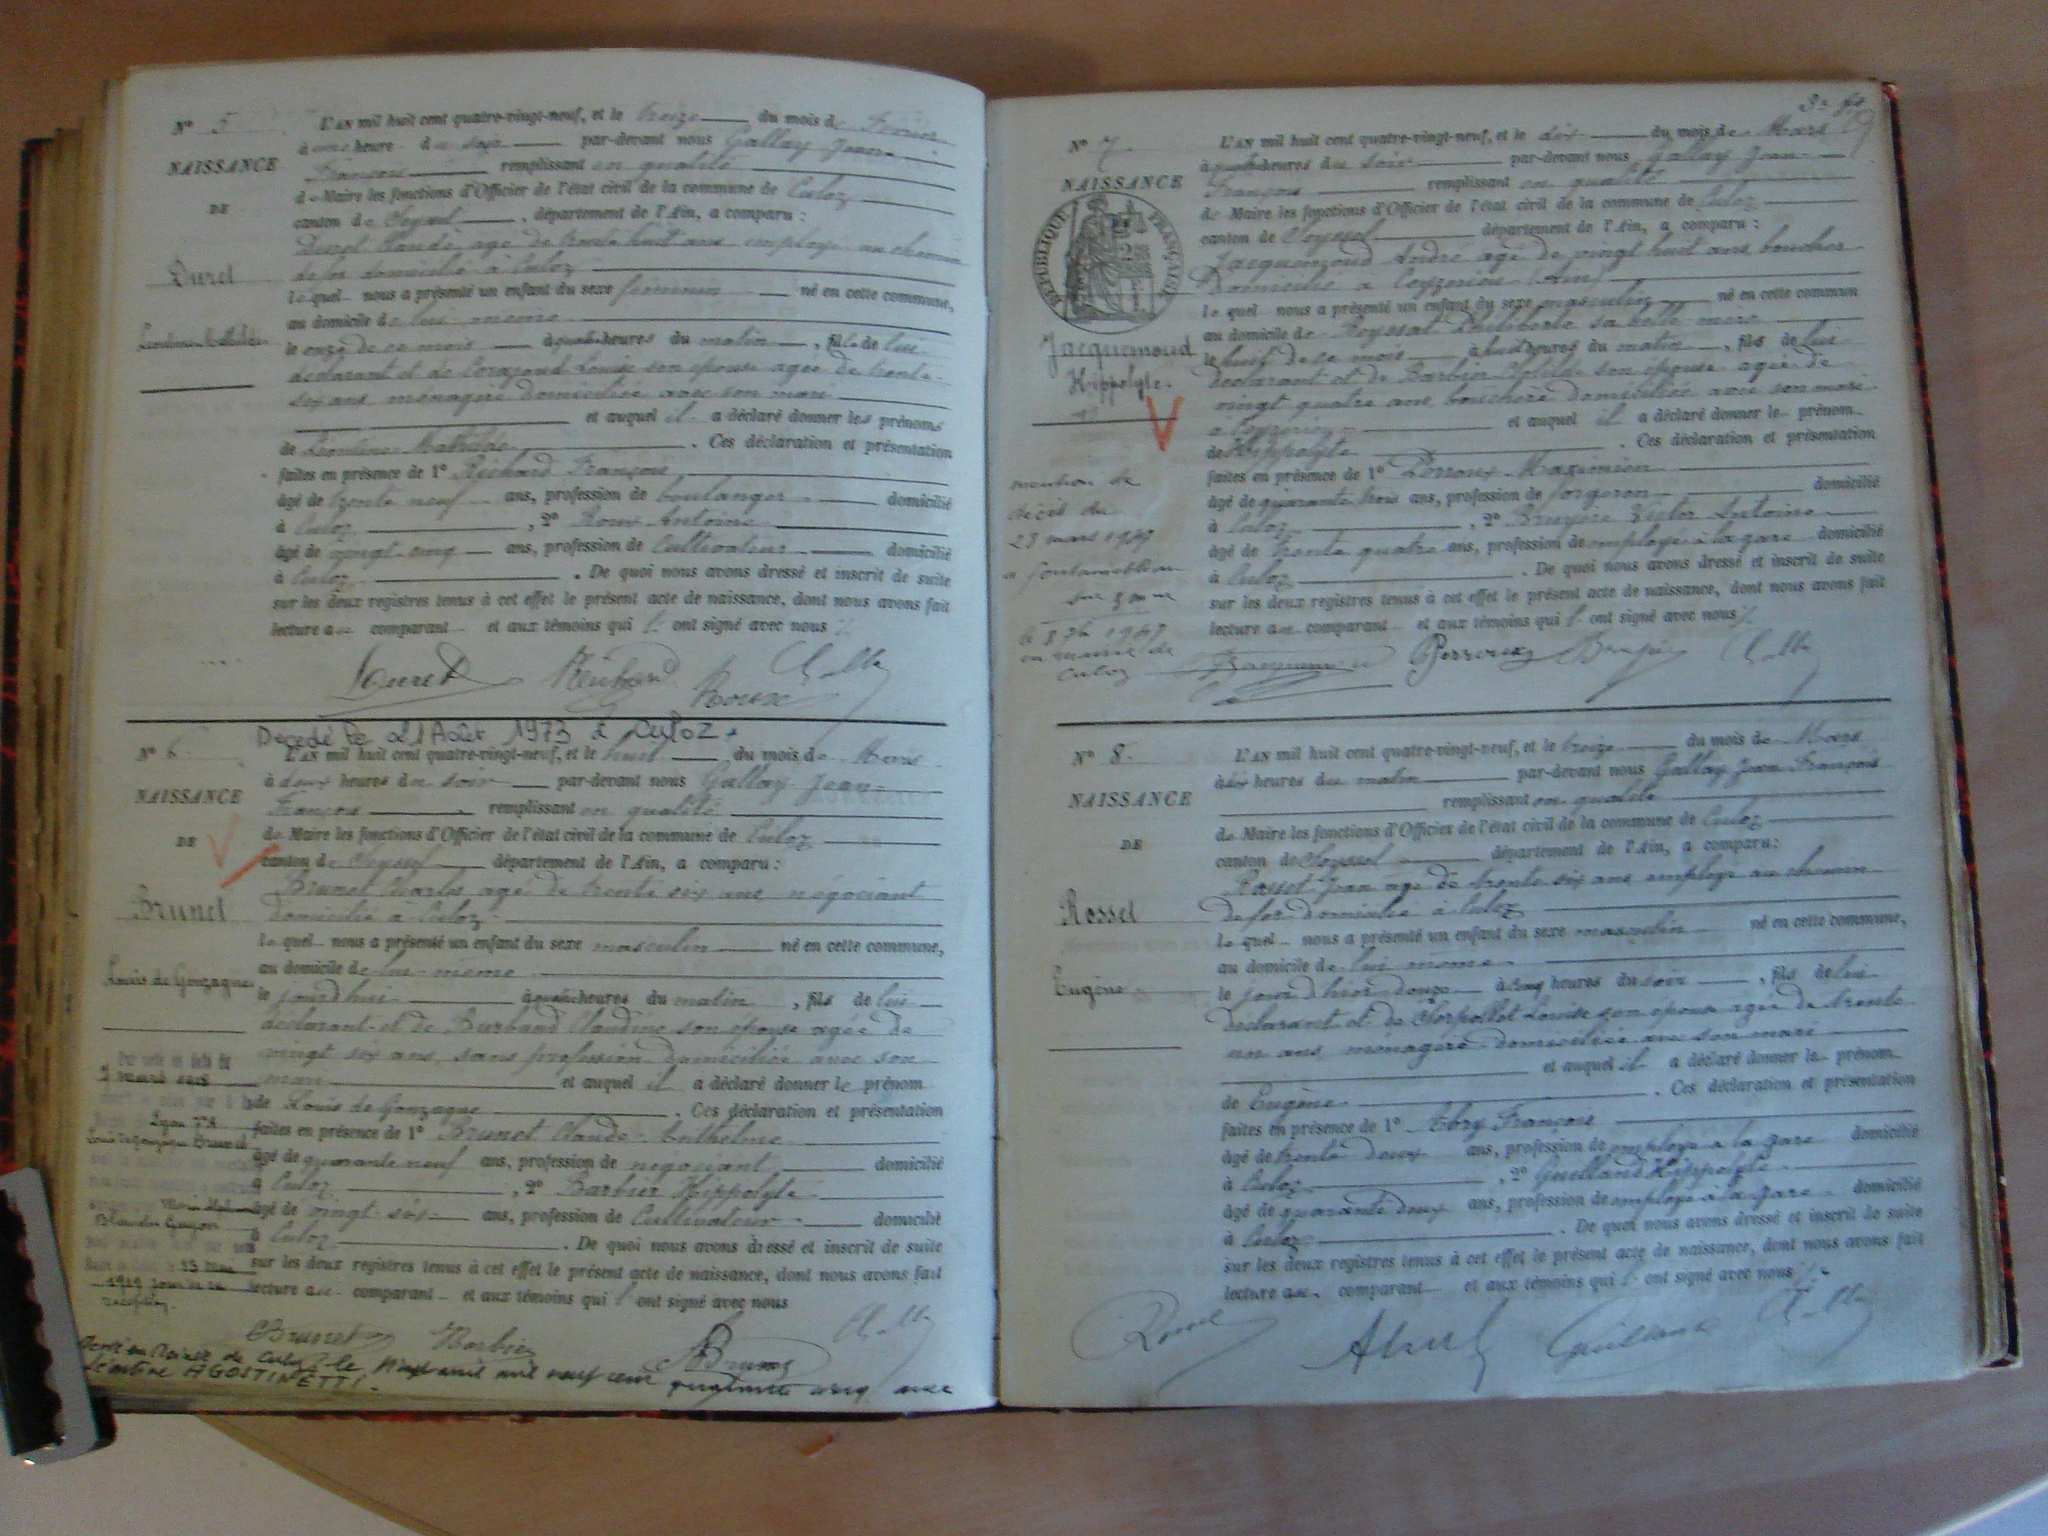 N° 5
NAISSANCE
DE
Duret
Léontine Mathilde
L'AN mil huit cent quatre-vingt-neuf, et le treize du mois de Février
à une heure du soir par-devant nous Gallay Jean
François remplissant en qualité
de Maire les fonctions d'Officier de l'état civil de la commune de Culoz
canton de Seyssel, département de l'Ain, a comparu :
Duret Claude, agé de trente huit ans employé au chemin
de fer domicilié à Culoz
lequel nous a présenté un enfant du sexe féminin né en cette commune,
au domicile de lui même
le onze de ce mois à quatre heures du matin, fille de lui
déclarant et de Louise son épouse agée de trente
six ans ménagère domiciliée avec son mari
et auquel il a déclaré donner les prénoms
de Léontine Mathilde. Ces déclaration et présentation
faites en présence de 1° Richard François
âgé de trente neuf ans, profession de boulanger domicilié
à Culoz, 2° Roux Antoine
âgé de vingt cinq ans, profession de Cultivateur domicilié
à Culoz. De quoi nous avons dressé et inscrit de suite
sur les deux registres tenus à cet effet le présent acte de naissance, dont nous avons fait
lecture au comparant et aux témoins qui l' ont signé avec nous
Duret Richard Roux Gallay
Décédé le 21 Août 1973 à Culoz
N° 6
NAISSANCE
DE
Brunet
Louis de Gonzague
L'AN mil huit cent quatre-vingt-neuf, et le huit du mois de Mars
à deux heures du soir par-devant nous Gallay Jean
François remplissant en qualité
de Maire les fonctions d'Officier de l'état civil de la commune de Culoz
canton de Seyssel département de l'Ain, a comparu :
Brunet Charles agé de trente six ans négociant
domicilié à Culoz
lequel nous a présenté un enfant du sexe masculin né en cette commune,
au domicile de lui-même
le jourd'hui à quatre heures du matin, fils de lui
déclarant et de Burbaud Claudine son épouse agée de
vingt six ans, sans profession domiciliée avec son
mari et auquel il a déclaré donner le prénom
de Louis de Gonzague. Ces déclaration et présentation
faites en présence de 1° Brunet Claude Anthelme
âgé de quarante neuf ans, profession de négociant domicilié
à Culoz, 2° Barbier Hippolyte
âgé de vingt six ans, profession de Cultivateur domicilié
à Culoz. De quoi nous avons dressé et inscrit de suite
sur les deux registres tenus à cet effet le présent acte de naissance, dont nous avons fait
lecture au comparant et aux témoins qui l' ont signé avec nous
Lyon
Louis de Gonzague Brunet
Guyon
1919 jour de sa
réception.
Brunet Barbier Brunet Gallay
en Mairie de Culoz le avril mil neuf cent quarante cinq avec
AGOSTINETTI.
N° 7
NAISSANCE
RÉPUBLIQUE FRANÇAISE
Jacquemond
Hippolyte.
mention de
décès du
23 mars 1947
à Fontainebleau
1947
en mairie de
Culoz
L'AN mil huit cent quatre-vingt-neuf, et le dix du mois de Mars
à quatre heures du soir par-devant nous Gallay Jean
François remplissant en qualité
de Maire les fonctions d'Officier de l'état civil de la commune de Culoz
canton de Seyssel département de l'Ain, a comparu :
Jacquemond André agé de vingt huit ans boucher
Domicilié à Ceyzérieu (Ain)
lequel nous a présenté un enfant du sexe masculin né en cette commun
au domicile de Philiberte sa belle mère
le huit de ce mois à huit heures du matin, fils de lui
déclarant et de Barbier son épouse agée de
vingt quatre ans bouchère domiciliée avec son mari
à Ceyzérieu et auquel il a déclaré donner le prénom
de Hippolyte. Ces déclaration et présentation
faites en présence de 1° Perroux Maximien
âgé de quarante trois ans, profession de forgeron domicilié
à Culoz, 2° Bruyère Victor Antoine
âgé de trente quatre ans, profession de employé à la gare domicilié
à Culoz. De quoi nous avons dressé et inscrit de suite
sur les deux registres tenus à cet effet le présent acte de naissance, dont nous avons fait
lecture au comparant et aux témoins qui l' ont signé avec nous
Perroux Gallay
N° 8.
NAISSANCE
DE
Rosset
Eugène
L'AN mil huit cent quatre-vingt-neuf, et le treize du mois de Mars
à dix heures du matin par-devant nous Gallay Jean François
remplissant en qualité
de Maire les fonctions d'Officier de l'état civil de la commune de Culoz
canton de Seyssel département de l'Ain, a comparu :
Rosset Jean agé de trente six ans employé au chemin
de fer domicilié à Culoz
lequel nous a présenté un enfant du sexe masculin né en cette commune,
au domicile de lui même
le jour d'hier douze à cinq heures du soir, fils de lui
déclarant et de Louise son épouse agée de trente
un ans, ménagère domiciliée avec son mari
et auquel il a déclaré donner le prénom
de Eugène. Ces déclaration et présentation
faites en présence de 1° Abry François
âgé de trente deux ans, profession de employé à la gare domicilié
à Culoz, 2° Guilland Hippolyte
âgé de quarante deux ans, profession de employé à la gare domicilié
à Culoz. De quoi nous avons dressé et inscrit de suite
sur les deux registres tenus à cet effet le présent acte de naissance, dont nous avons fait
lecture au comparant et aux témoins qui l' ont signé avec nous
Guilland Gallay